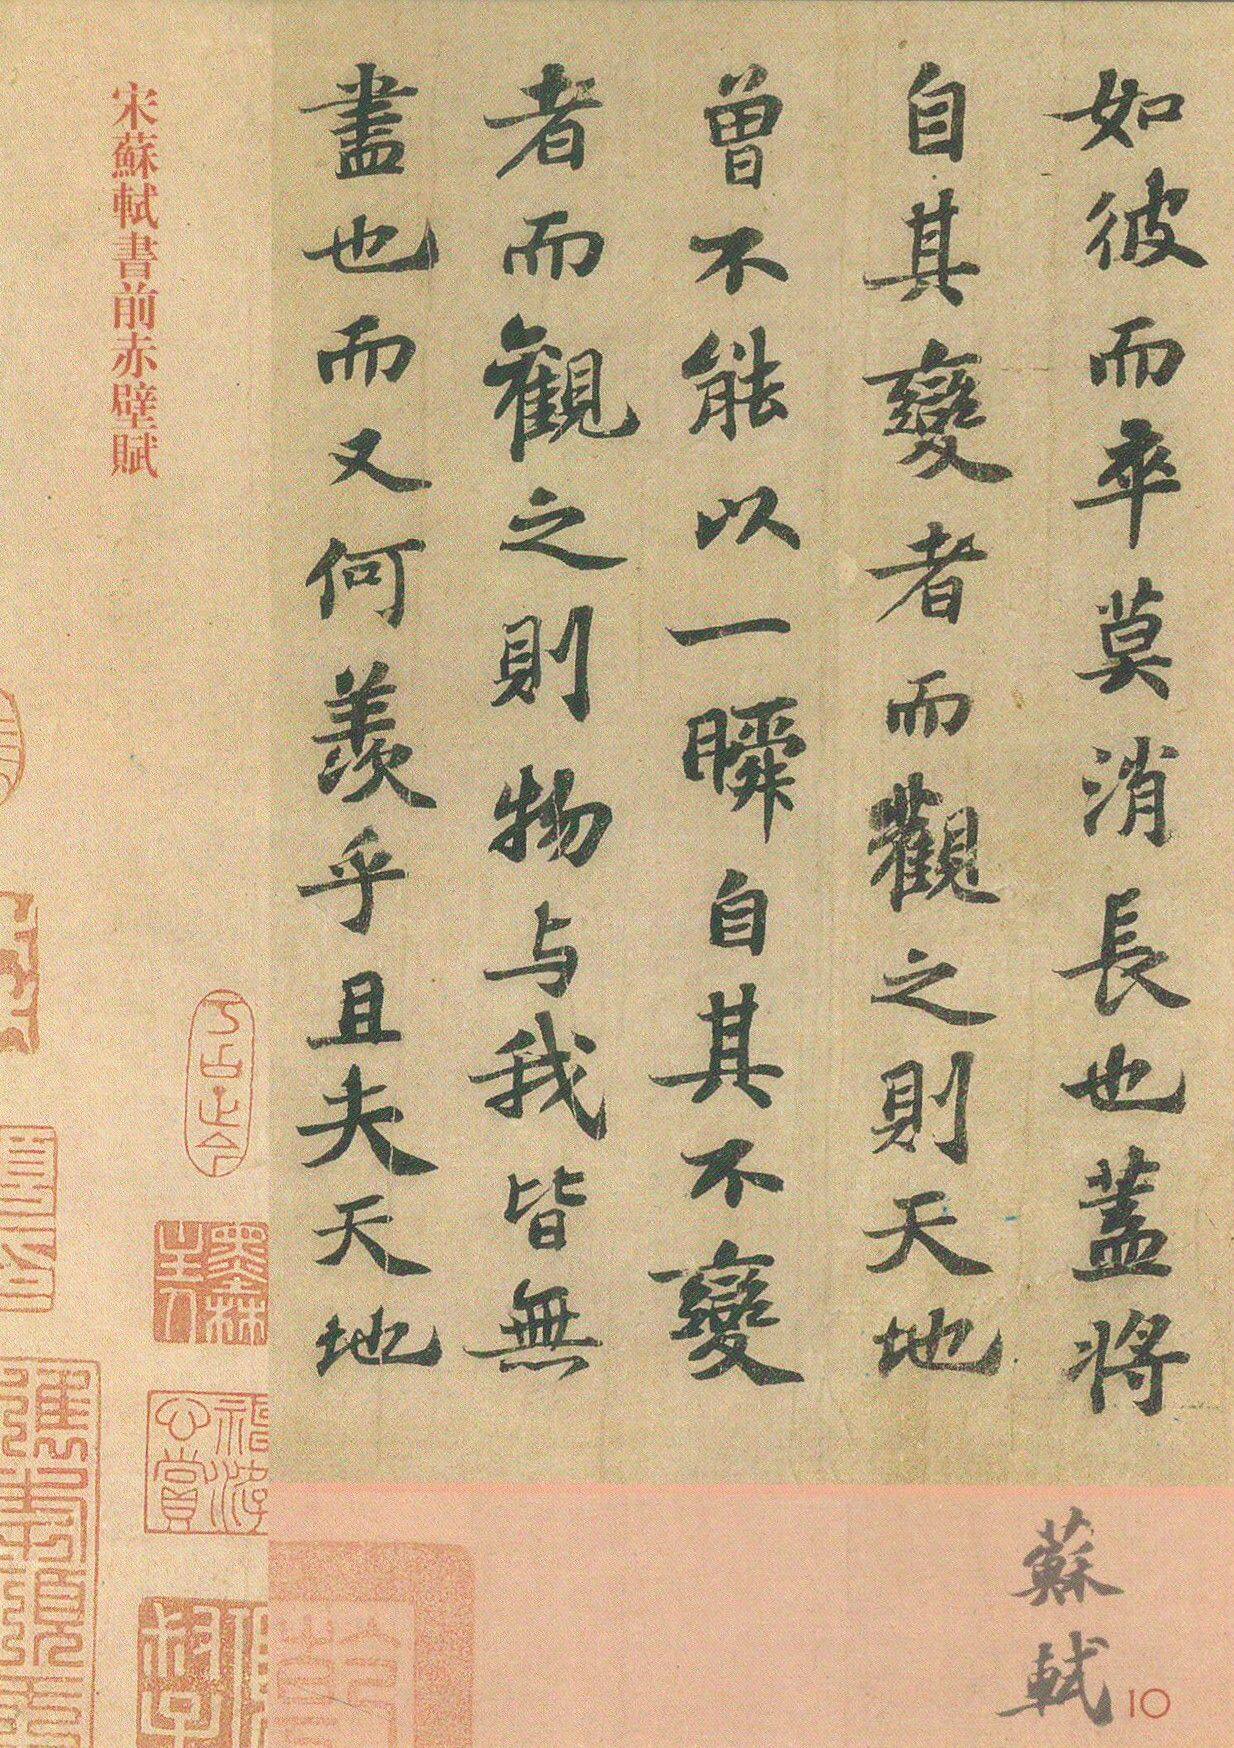 如彼而卒莫消長也蓋將
自其變者而觀之則天地
曾不能以一瞬自其不變
者而觀之則物与我皆無
盡也而又何羨乎且夫天地
宋蘇軾書前赤壁賦
蘇軾
10